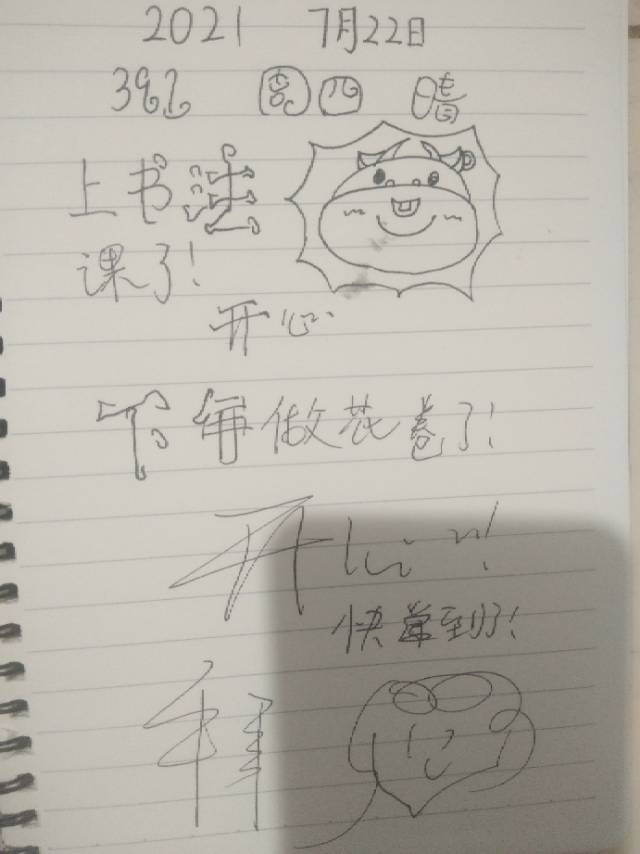 2021 7月22日
周四 晴
上书法
课了!
开心
下午做花卷了!
开心!
快单到了!
拜